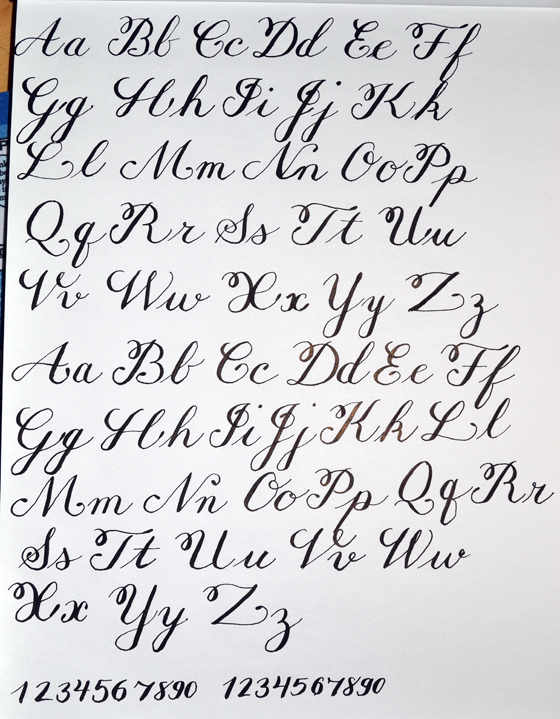 Aa Bb Cc Dd Ee Ff
Gg Hh Ii Jj Kk
Ll Mm Nn Oo Pp
Qq Rr Ss Tt Uu
Vv Ww Xx Yy Zz
Aa Bb Cc Dd Ee Ff
Gg Hh Ii Jj Kk Ll
Mm Nn Oo Pp Qq Rr
Ss Tt Uu Vv Ww
Xx Yy Zz
1234567890 1234567890